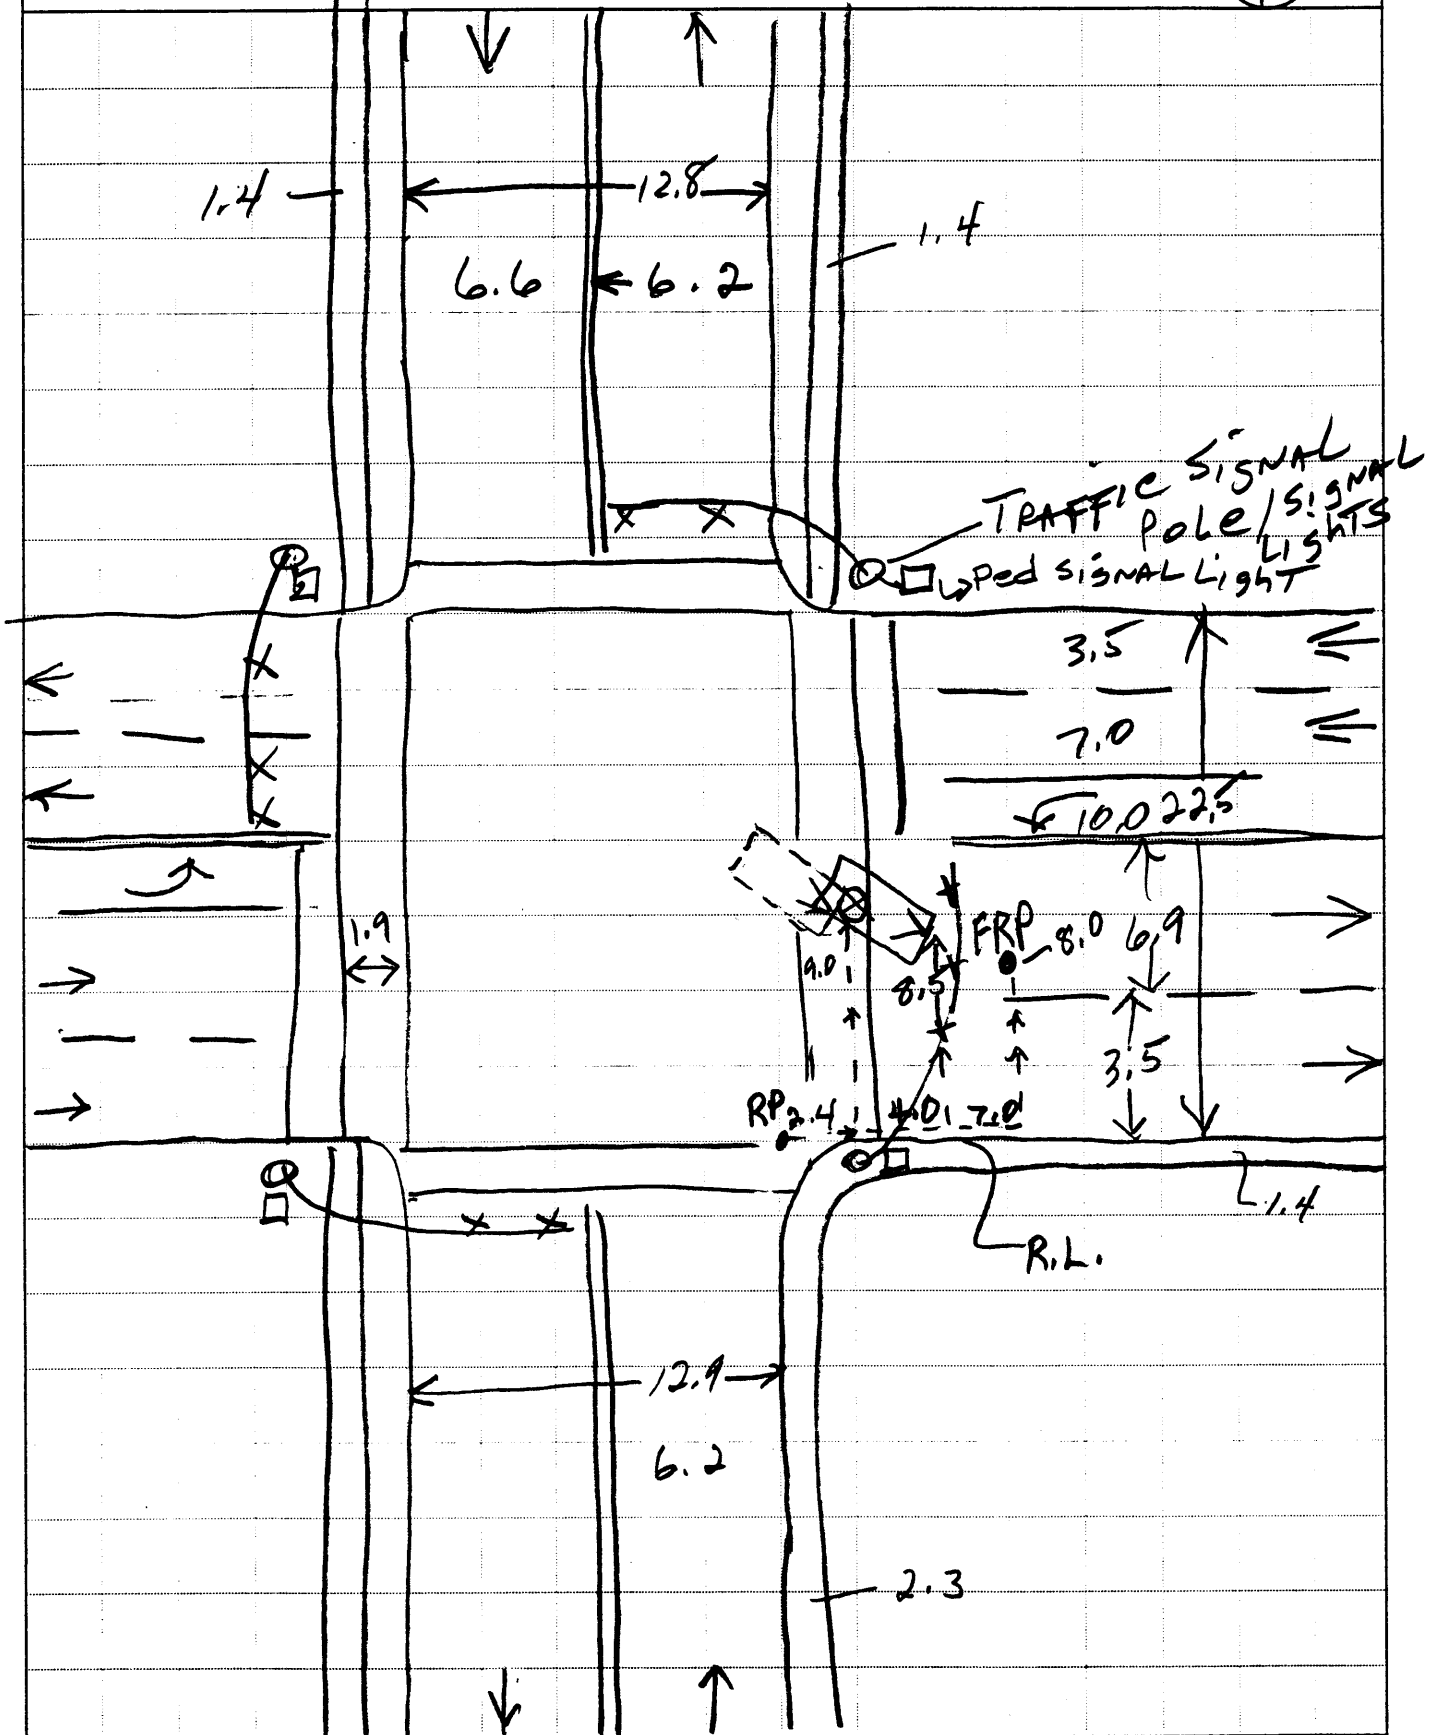 1.4
12.8
1.4
6.6
6.2
TRAFFIC SIGNAL
POLE/SIGNAL
LIGHTS
Ped SIGNAL LIGHT
3.5
7.0
10.0 22.5
1.9
FRP 8.0
6.9
9.0
8.5
3.5
RP 2.4 4.0 7.0
1.4
R.L.
12.9
6.2
2.3